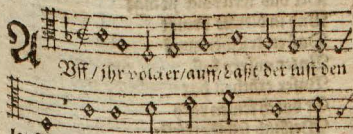 AVff/ihr volcker/auff/Laßt der lust den